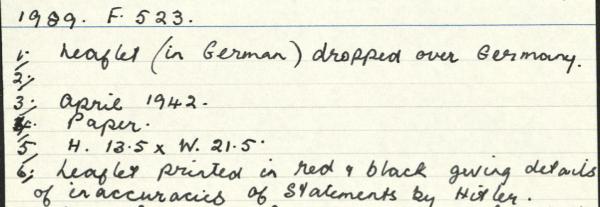 1989. F. 523.
1; Leaflet (in German) dropped over Germany.
2;
3; April 1942.
4; Paper.
5 H. 13.5 x W. 21.5
6; Leaflet printed in red & black giving details
of inaccuracies of Statements by Hitler.